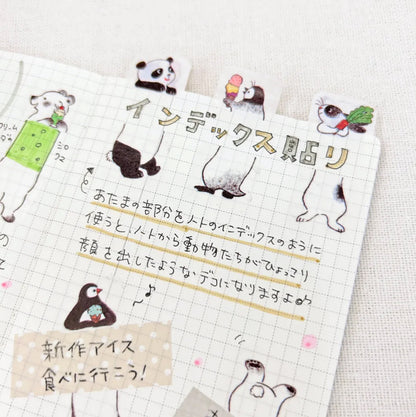 インデックス貼り
あたまの部分をノートのインデックスのように
使うと、ノートから動物たちがひょっこり
顔を出したようなデコになりますよ
新作アイス
食べに行こう!